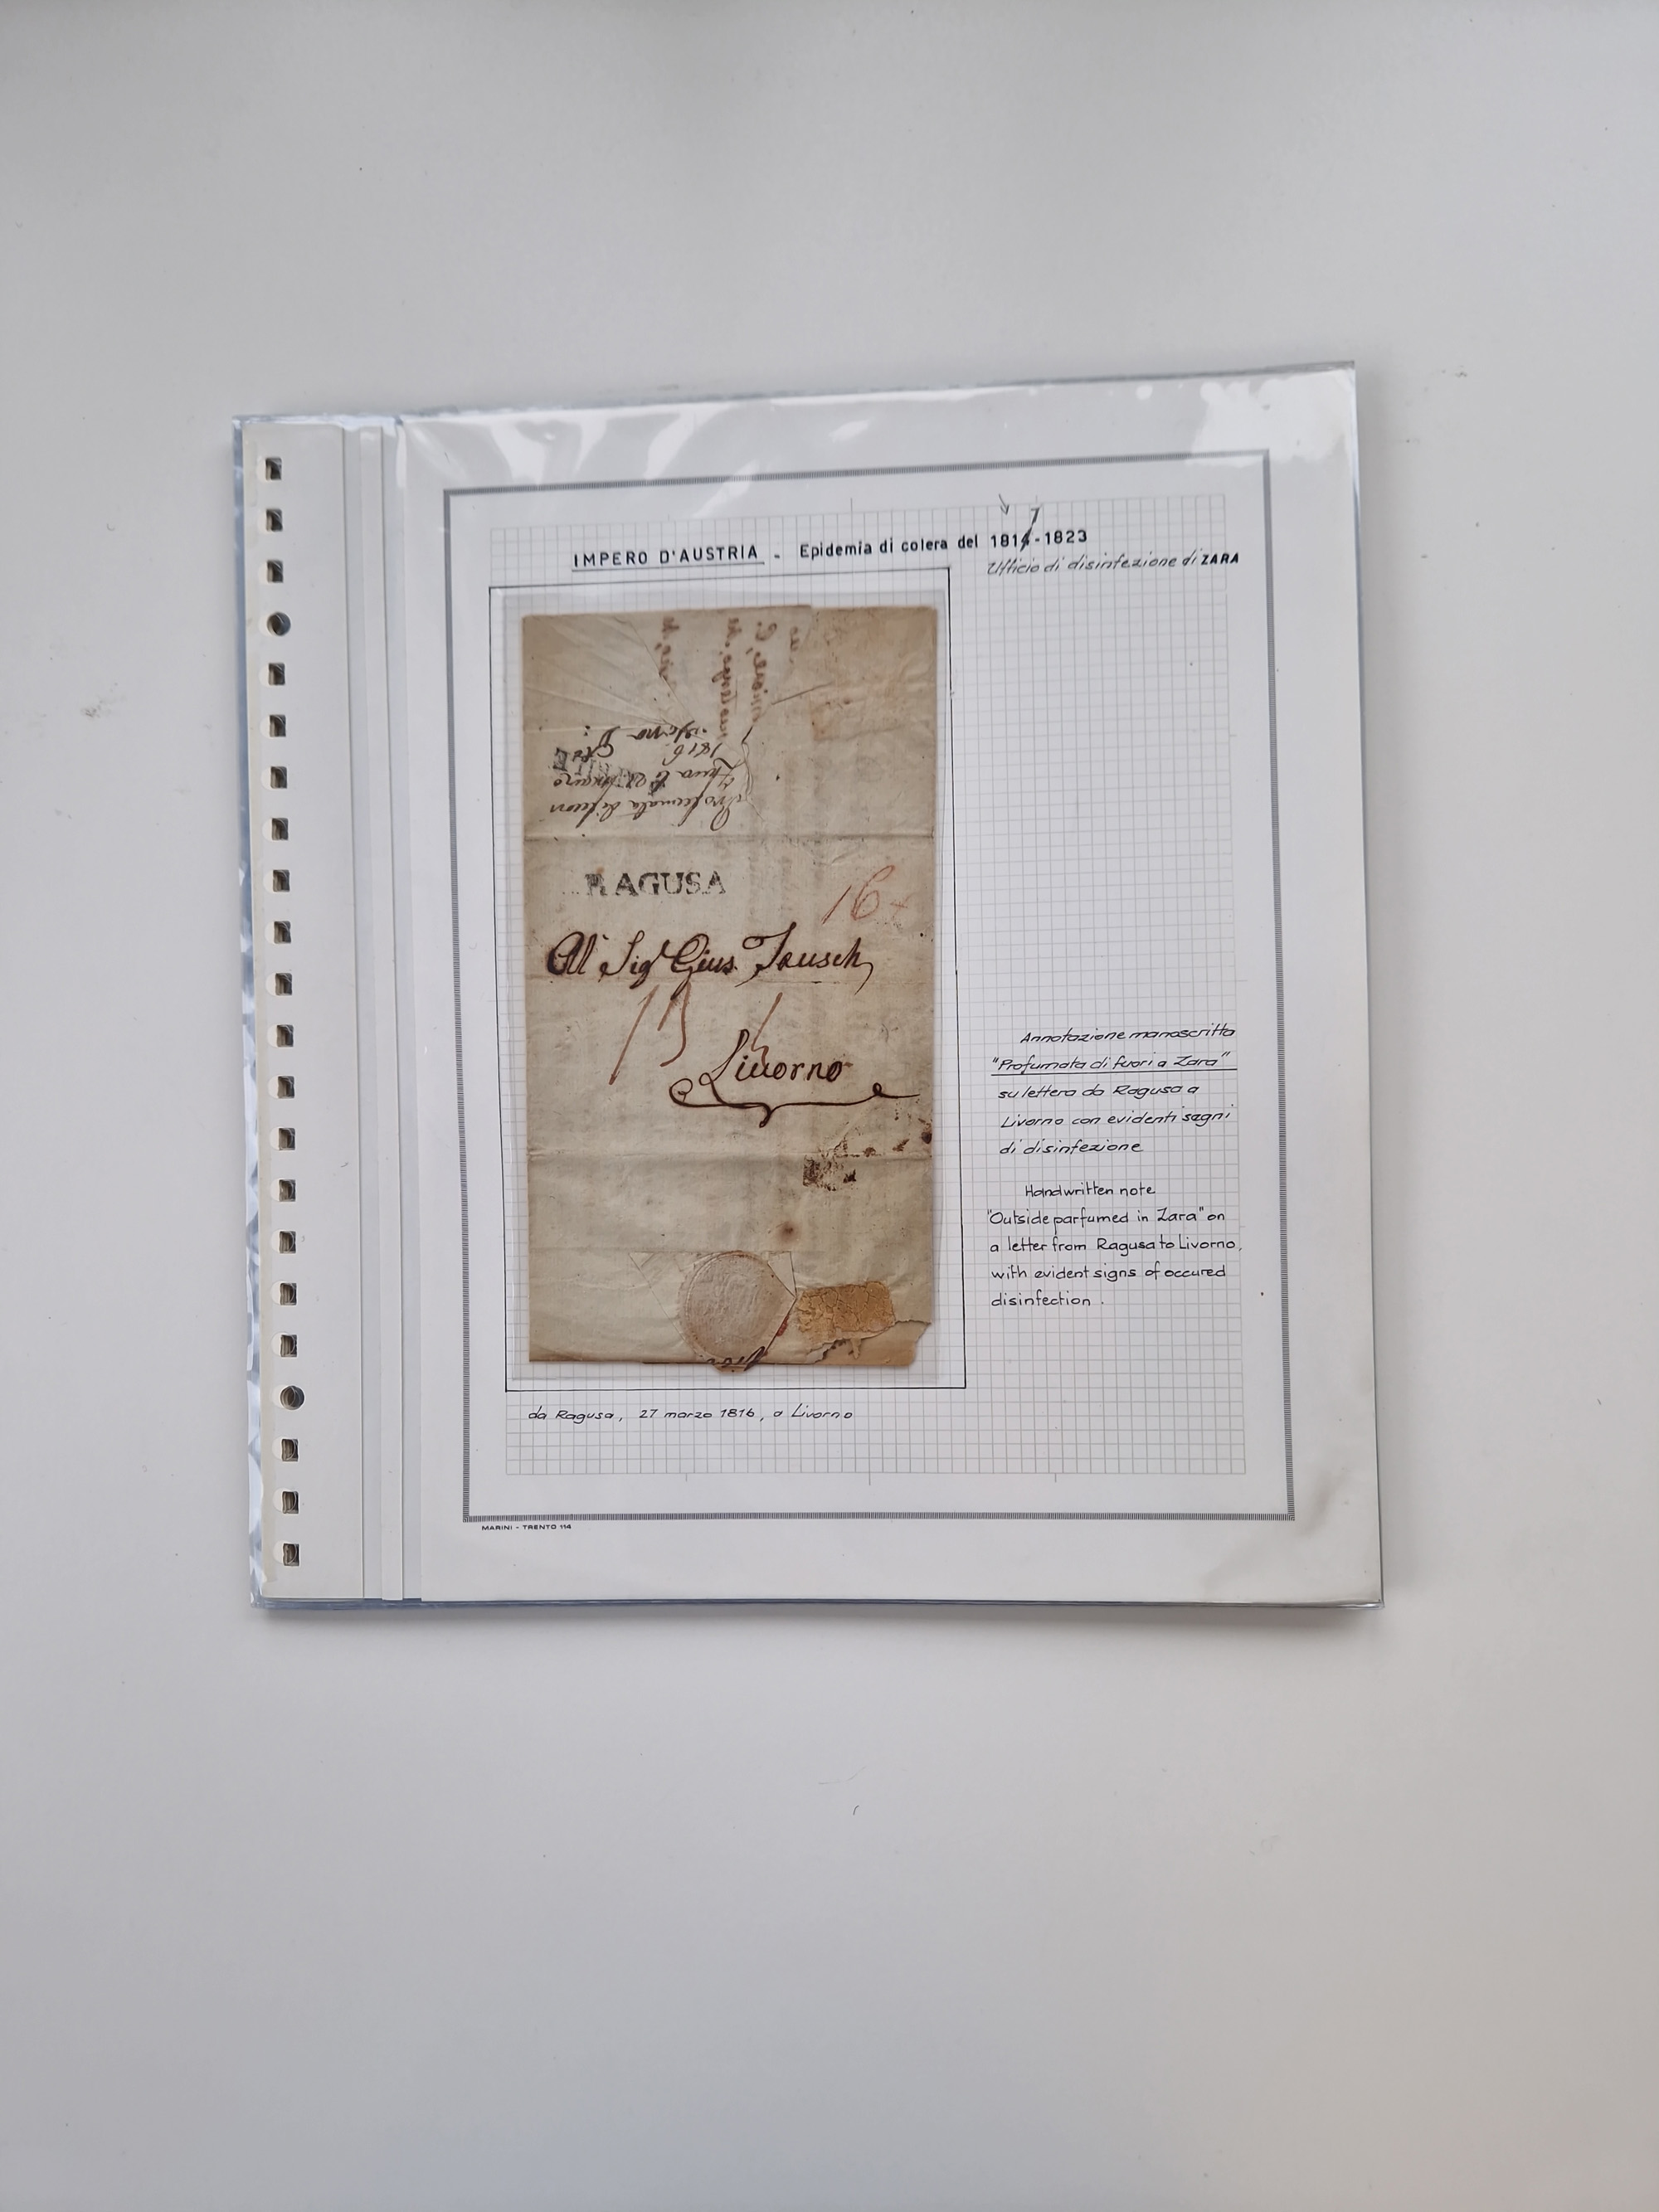 IMPERO D'AUSTRIA - Epidemia di colera del 1814-1823
7
Ufficio di disinfezione di ZARA
Profumata di fuori
Zara
1816
RAGUSA
16
Al Sigr Gius. Tausch
Livorno
Annotazione manoscritta
"Profumata di fuori a Zara"
su lettera da Ragusa a
Livorno con evidenti segni
di disinfezione
Handwritten note
"Outside parfumed in Zara" on
a letter from Ragusa to Livorno,
with evident signs of occured
disinfection.
da Ragusa, 27 marzo 1816, a Livorno
MARINI - TRENTO 114